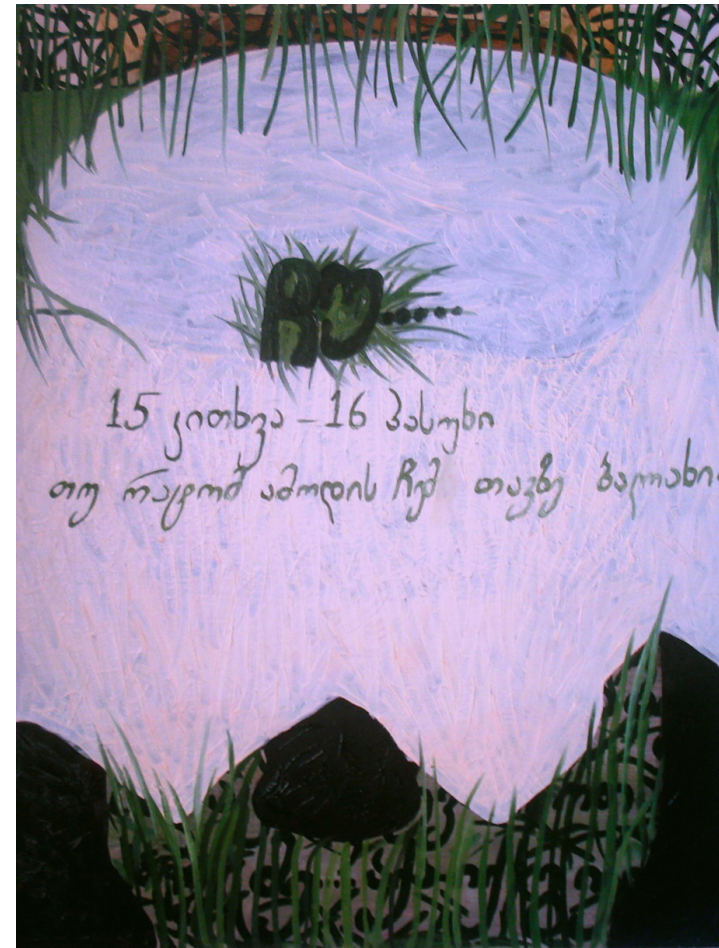 15 კითხვა – 16 პასუხი
თუ რატომ ამოდის ჩემ თავზე ბალახი